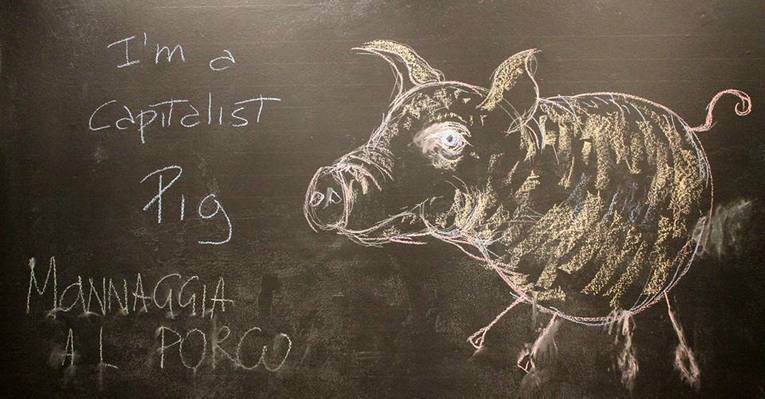 I'm a
Capitalist
Pig
MANNAGGIA
AL PORCO